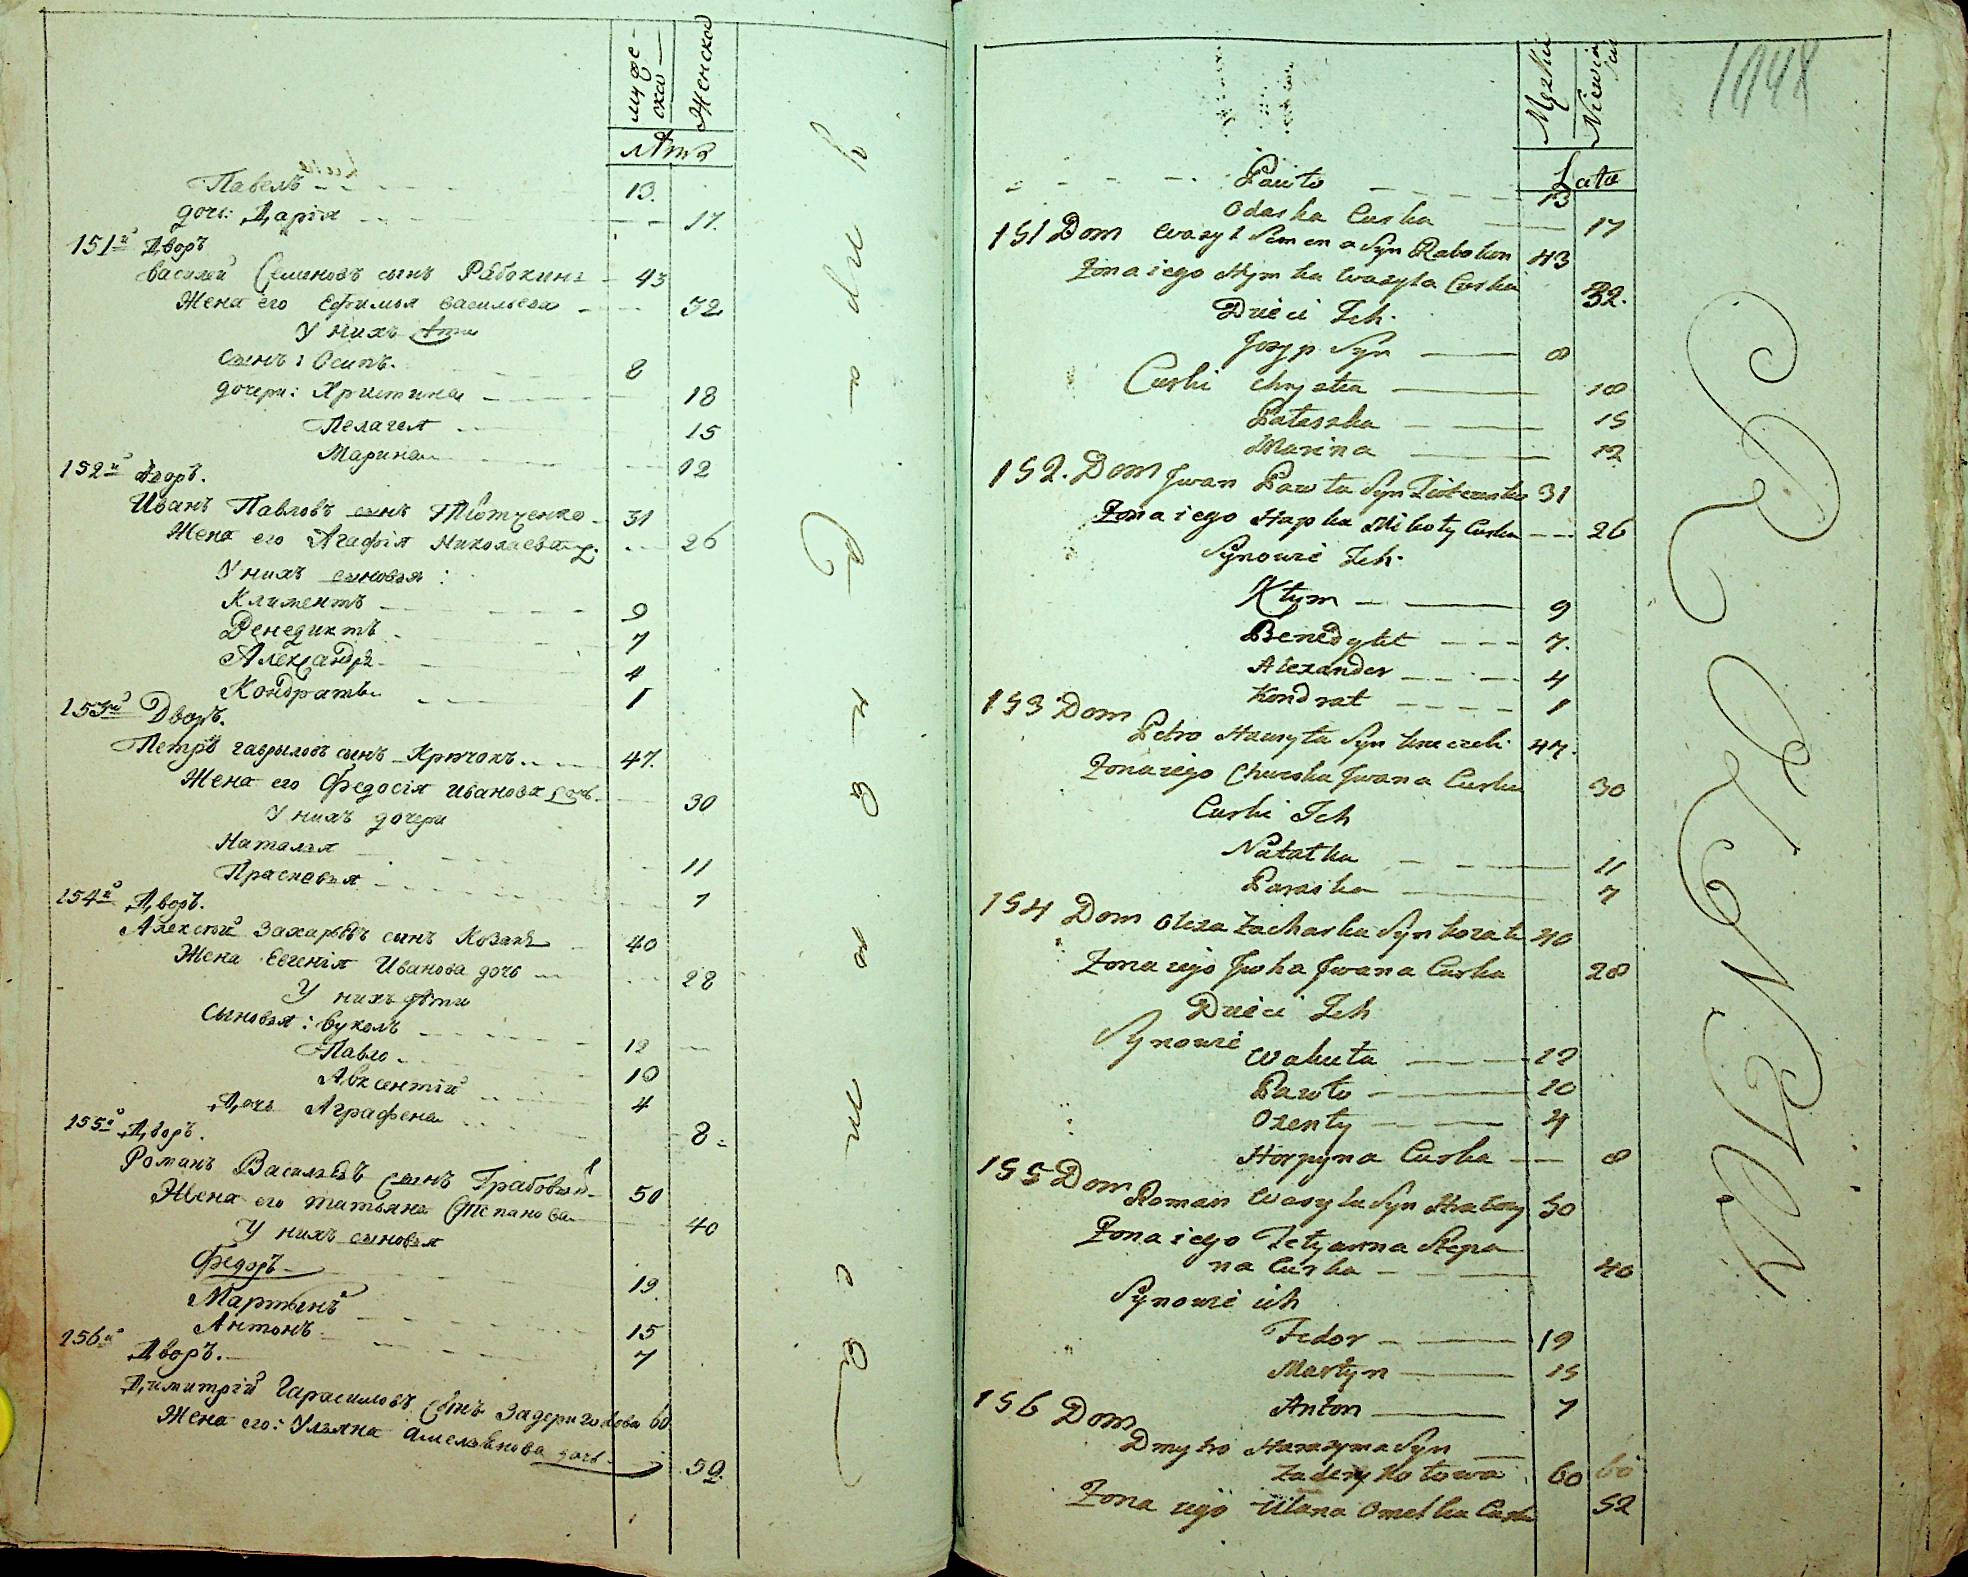 мужеска
Женска
лѣта
Павелъ 13.
дочь: Дарія 17.
151й Дворъ
Василей Семеновъ сынъ Рабокинъ 43
Жена его Ефимья Васильева 32
У нихъ дѣти
Сынъ: Осипъ. 8
дочери: Христина 18
Пелагея 15
Марина 12
152й Дворъ.
Иванъ Павловъ сынъ 31
Жена его Агафія Николаева 26
У нихъ сыновья:
Климентъ 9
Венедиктъ 7
Александръ 4
Кондратъ 1
153й Дворъ.
Петръ Гавриловъ сынъ Крючокъ 47.
Жена его Федосія Иванова дочь 30
У нихъ дочери
Наталья 11
Прасковья 7
154й Дворъ.
Алексѣй Захарьевъ сынъ Козакъ 40
Жена Евгенія Иванова дочь 28
У нихъ дѣти
Сыновья: Вуколъ 12
Павло 10
Авксентій 4
Дочь Аграфена 8
155й Дворъ.
Романъ Васильевъ сынъ Грабовый 50
Жена его Татьяна Степанова 40
У нихъ сыновья
Федоръ 19
Мартынъ 15
Антонъ 7
156й Дворъ.
Димитрій Гарасимовъ сынъ 60
Жена его: Ульяна Амельянова дочь 52.
Męzkie
Lata
Pawło 13
Odarka Curka 17
151 Dom Wasyl Semena Syn Rabokon 43
Zona iego Hymka Wasyla Curka 32.
Dzieci Ich.
Josyp Syn 8
Curki Chrystia 18
Palaszka 15
Marina 12
152. Dom Jwan Pawła Syn 31
Zona iego Hapka Mikoły Curka 26
Synowie Ich.
Kłym 9
Benedykt 7.
Alexander 4
Kondrat 1
153 Dom
Petro Hawryła Syn Kruczek 47.
Zona iego Chweska Jwana Curka 30
Curki Ich
Natałka 11
Paraska 7
154 Dom Olexa Zacharka Syn Kozak 40
Zona iego Jwha Jwana Curka 28
Dzieci Ich
Synowie
Wakuła 12
Pawło 10
Oxenty 4
Horpyna Curka 8
155 Dom
Roman Wasyla Syn Hrabowy 50
Zona iego Tetyanna Stepa
na Curka 40
Synowie ich
Fedor 19
Martyn 15
Anton 7
156 Dom
Dmytro Harasyma Syn
Zaderyhołowa 60 60
Zona iego Ulana Omelka Curka 52